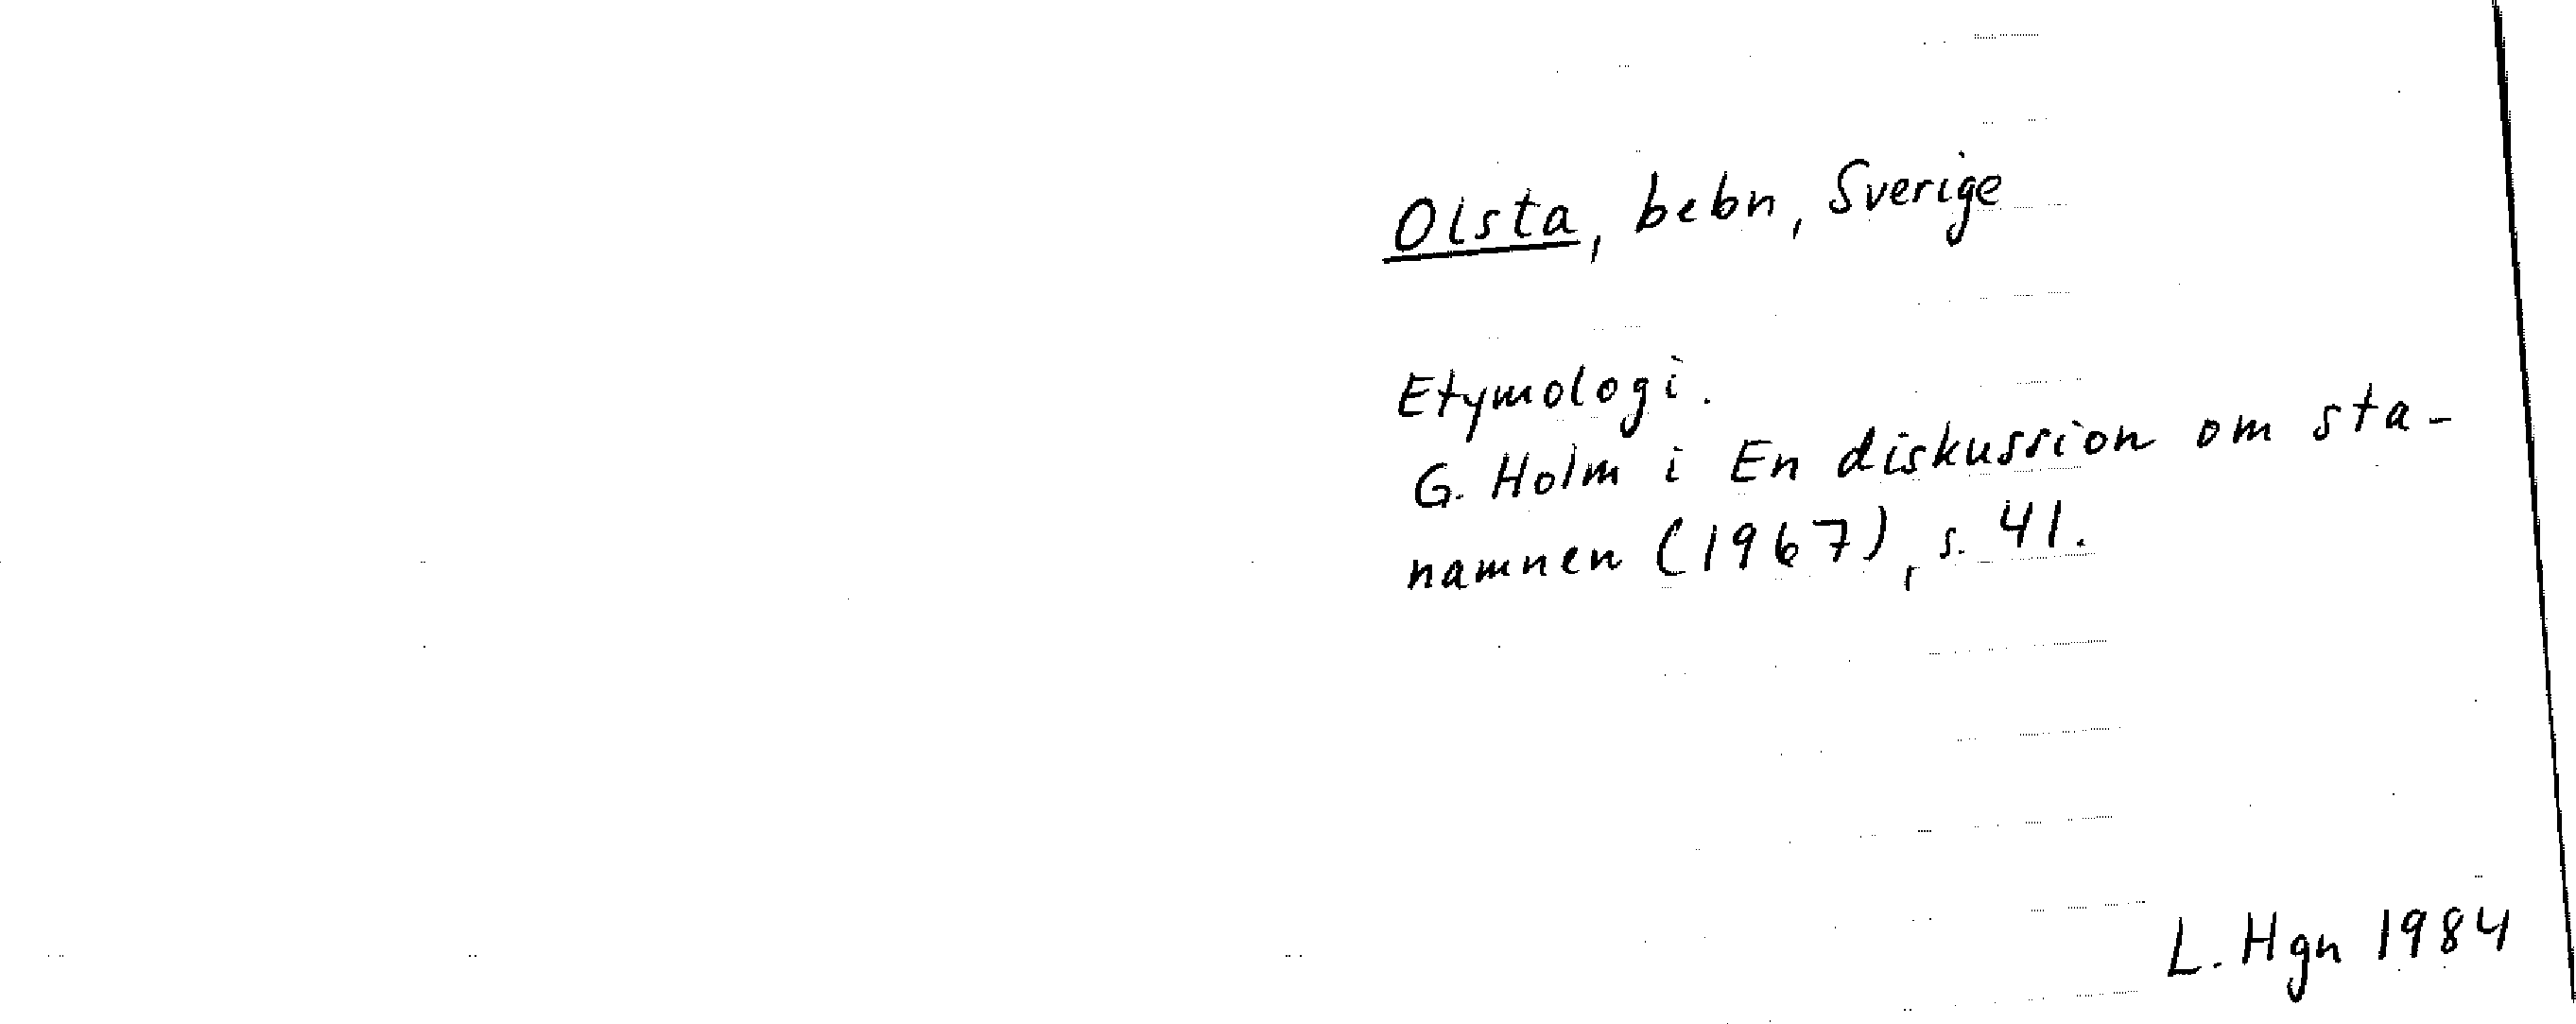 Olsta, bebn, Sverige
Etymologi.
G. Holm i En diskussion om sta-
namnen (1967), s. 41.
L. Hgn 1984